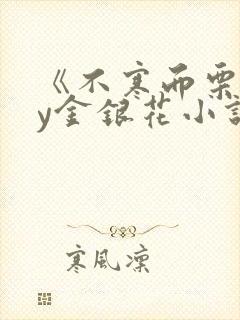 《不寒而栗
y金银花小説
寒風凜